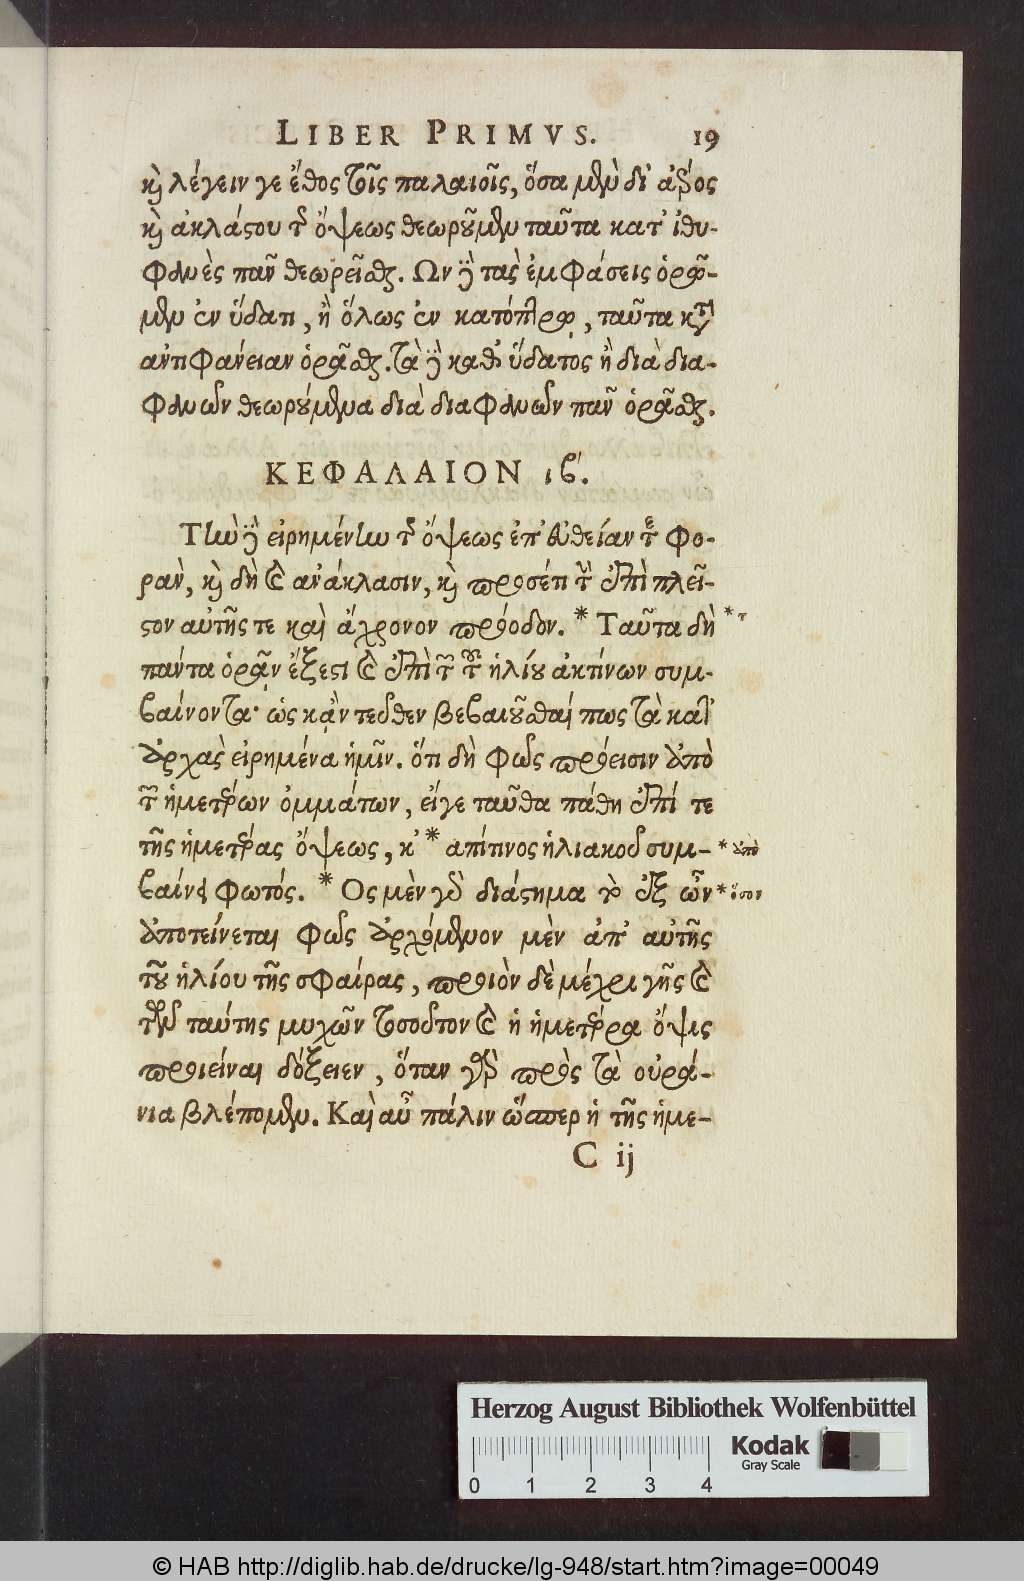 LIBER PRIMVS. 19
καὶ λέγειν γε ἔθος τοῖς παλαιοῖς, ὅσα μὲν δι' ἀέρος
καὶ ἀκλάστου τῆς ὄψεως θεωροῦμεν ταῦτα κατ' ἰθυ-
φανὲς πᾶν θεωρεῖσθαι. Ων δὲ τὰς ἐμφάσεις ὁρῶ-
μεν ἐν ὕδατι, ἢ ὅλως ἐν κατόπτρῳ, ταῦτα κατὰ
ἀντιφάνειαν ὁρᾶσθαι. Τὰ δὲ καθ' ὕδατος ἢ διὰ δια-
φανῶν θεωρούμενα διὰ διαφανῶν πᾶν ὁρᾶσθαι.
ΚΕΦΑΛΑΙΟΝ ιϐ'.
Τὴν δὲ εἰρημένην τῆς ὄψεως ἐπ' εὐθείαν τε φο-
ρὰν, καὶ δὴ καὶ ἀνάκλασιν, καὶ προσέτι τὴν ἐπὶ πλεῖ-
στον αὐτῆς τε καὶ ἄχρονον πρόοδον. * Ταῦτα δὴ *
πάντα ὁρᾷν ἔξεστι καὶ ἐπὶ τῶν τοῦ ἡλίου ἀκτίνων συμ-
ϐαίνοντα· ὡς κᾂν τεῦθεν βεϐαιοῦσθαί πως τὰ κατ'
ἀρχὰς εἰρημένα ἡμῖν. ὅτι δὴ φῶς πρόεισιν ἀπὸ
τῶν ἡμετέρων ὀμμάτων, εἴγε ταῦθα πάθη ἐπί τε
τῆς ἡμετέρας ὄψεως, κ' * ἀπίπνος ἡλιακοῦ συμ- * ἀπὸ
ϐαίνει φωτός. * Ος μὲν γὰρ διάστημα τὸ ἐξ ὧν * ὅσον
ἀποτείνεται φῶς ἀρχόμενον μὲν ἀπ' αὐτῆς
τοῦ ἡλίου τῆς σφαίρας, προϊὸν δὲ μέχρι γῆς καὶ
τῶν ταύτης μυχῶν τοσοῦτον καὶ ἡ ἡμετέρα ὄψις
προϊέναι δόξειεν, ὅταν γε πρὸς τὰ οὐρά-
νια βλέπομεν. Καὶ αὖ πάλιν ὥσπερ ἡ τῆς ἡμε-
C ij
Herzog August Bibliothek Wolfenbüttel
Kodak
Gray Scale
0 1 2 3 4
© HAB http://diglib.hab.de/drucke/lg-948/start.htm?image=00049